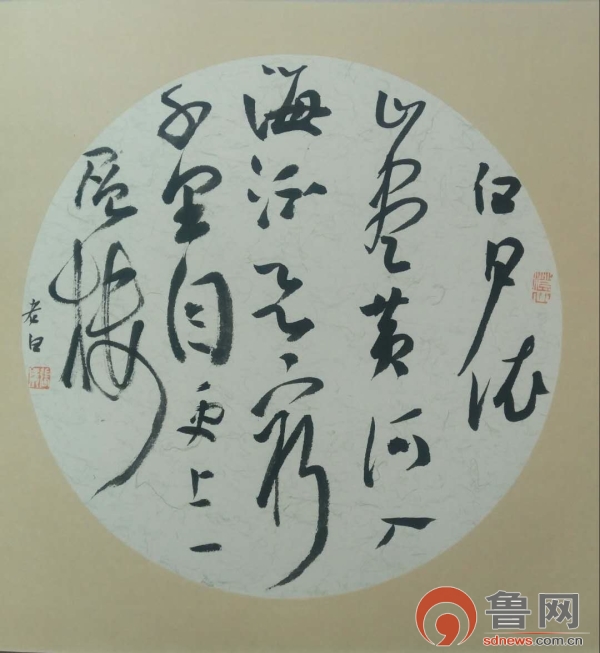 白日依
山盡黄河入
海流欲窮
千里目更上一
層樓
老白
鲁网
sdnews.com.cn